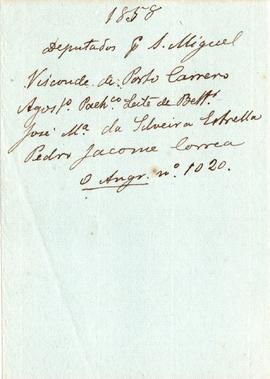 1858
Deputados p S. Miguel
Visconde de Porto Carrero
Agostº. Pachº Leite de Bettt
José Mª da Silveira Estrella
Pedro Jacome Correa
O Angr. nº. 1020.